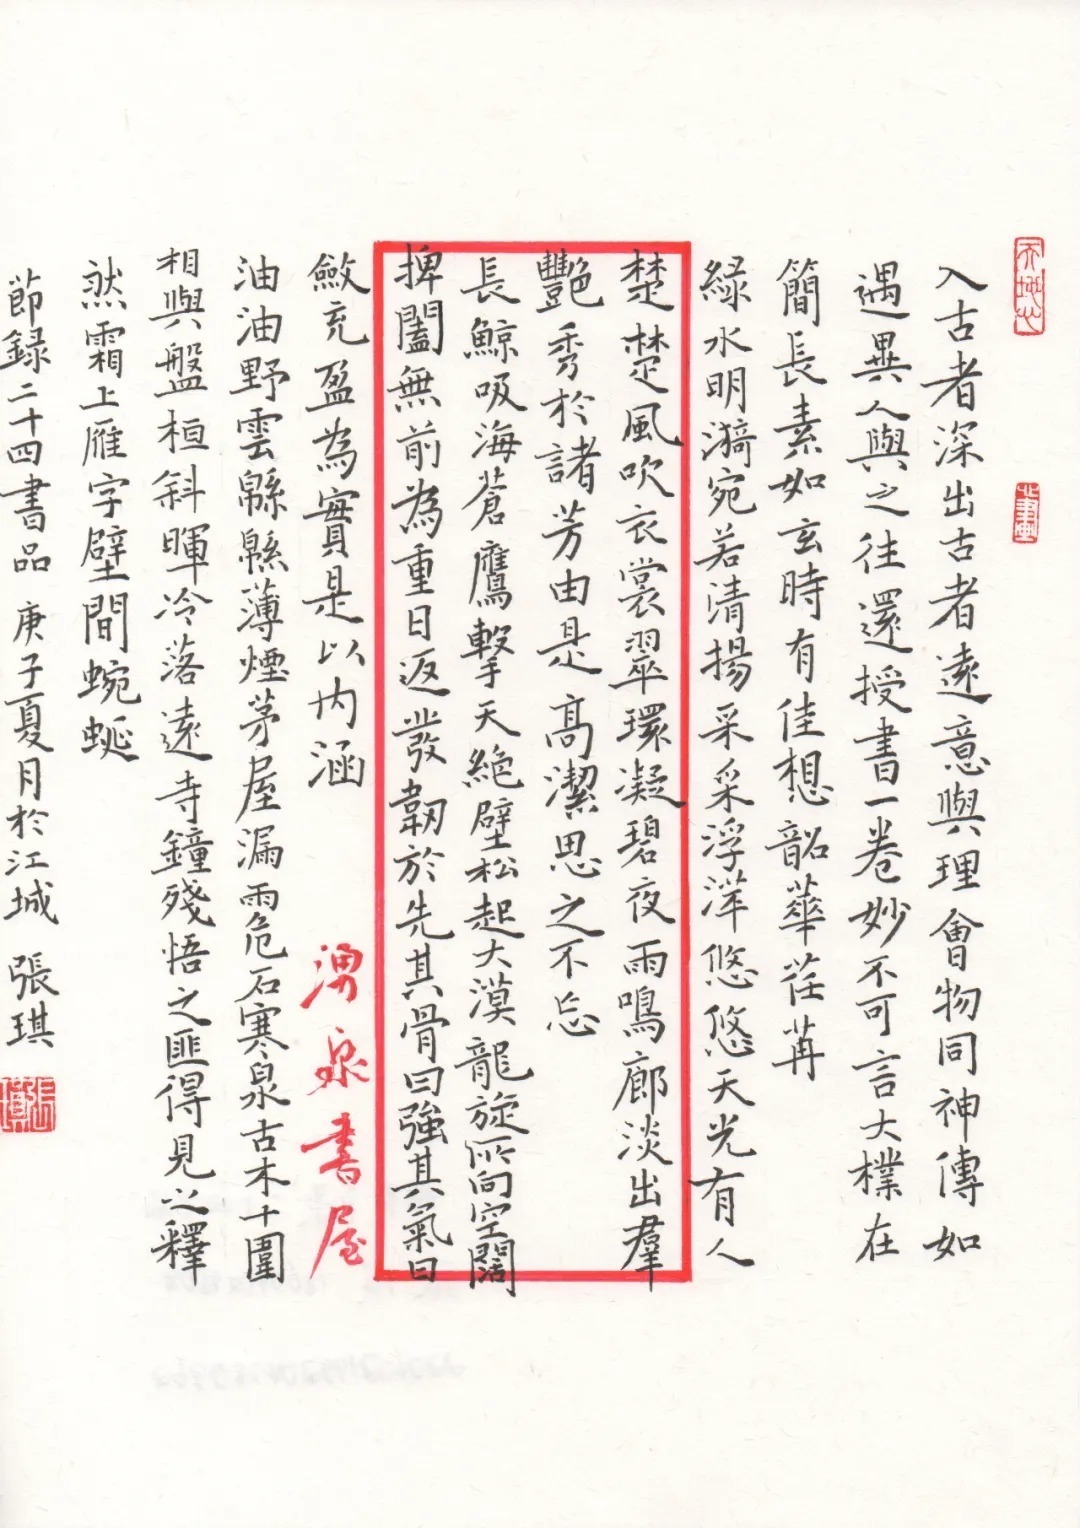 入古者深出古者遠意與理會物同神傳如
遇異人與之往還授書一卷妙不可言大樸在
簡長素如玄時有佳想韶華荏苒
緑水明漪宛若清揚采采浮萍悠悠天光有人
楚楚風吹衣裳翠環凝碧夜雨鳴廊淡出羣
艷秀於諸芳由是高潔思之不忘
長鯨吸海蒼鷹擊天絕壁松起大漠龍旋所向空闊
捭闔無前為重日返發韌於先其骨曰強其氣曰
斂充盈為實是以内涵
湧泉書屋
油油野雲緜緜薄煙茅屋漏雨危石寒泉古木十圍
相與盤桓斜暉冷落遠寺鐘殘悟之匪得見之釋
然霜上雁字壁間蜿蜒
節録二十四書品 庚子夏月於江城 張琪